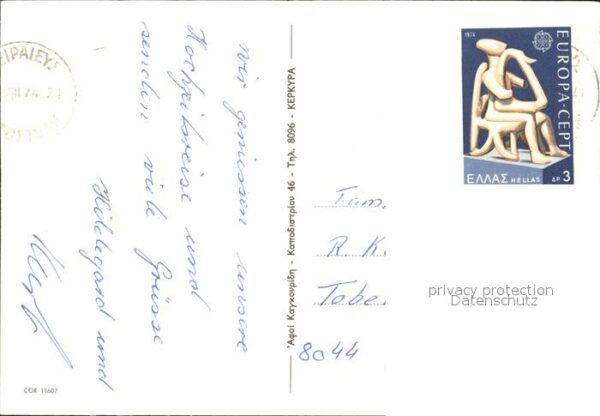 ΕΙΡΑΙΕΥΣ
VIII 74. 21
wir geniessen unsere
Hochzeitsreise und
senden viele Grüsse
Hildegard und
ΑΦοί Καγκουρίδη - Καποδιστρίου 46 - Τηλ. 8096 - ΚΕΡΚΥΡΑ
1974
EUROPA·CEPT
ΕΛΛΑΣ HELLAS ΔΡ 3
Fam.
R. K.
Tobe
8044
privacy protection
Datenschutz
COR 11607